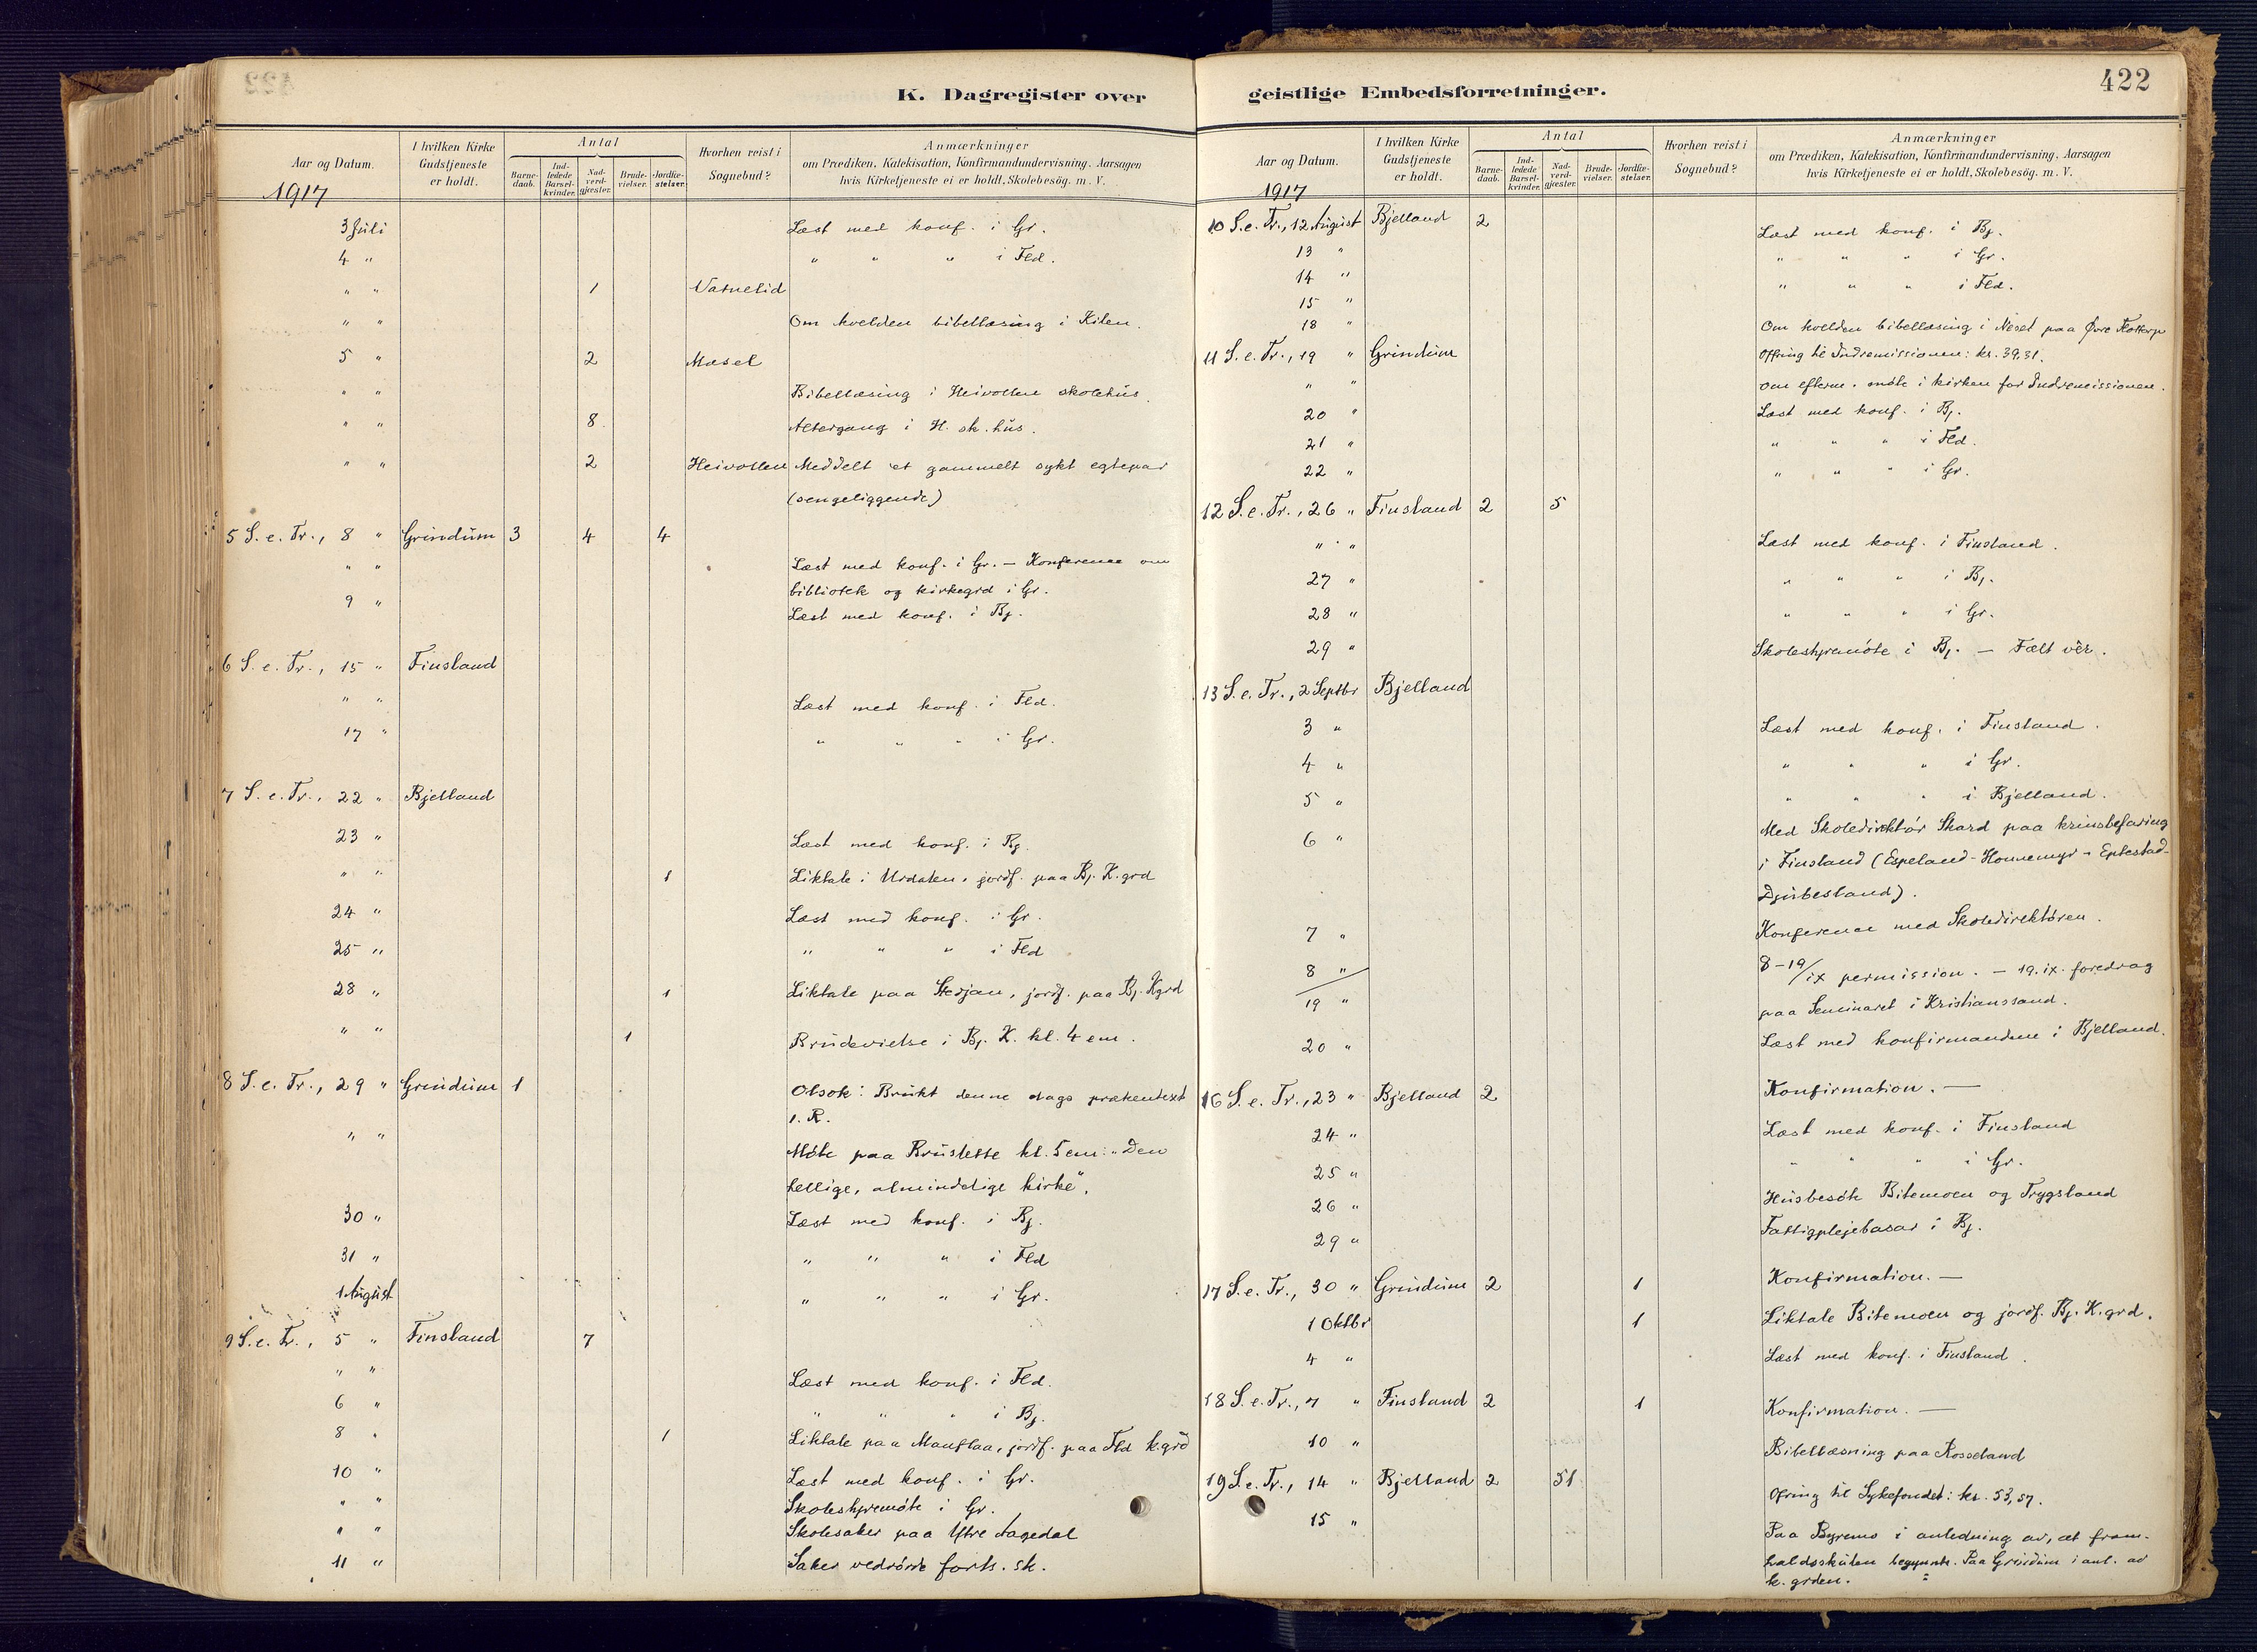 K. Dagregister over
Aar og Datum.
I hvilken Kirke Gudstjeneste er holdt.
Antal
Barnedaab.
Indledede Barselkvinder.
Nadverdgjester.
Brudevielser.
Jordfæstelser.
Hvorhen reist i Sognebud?
Anmærkninger
om Prædiken, Katekisation, Konfirmandundervisning, Aarsagen
hvis Kirketjeneste ei er holdt, Skolebesøg. m. V.
1917
3 Juli Læst med konf. i Gr.
4 " " " " i Fld.
" " 1 Vatnelid
" " Om kvelden bibellæsing i Kilen.
5 " 2 Mæsel
" " Bibellæsing i Heivollen skolehus.
" " 8 Altergang i H. sk. hus.
" " 2 Heivollen Meddelt et gammelt sykt egtepar
(sengeliggende)
5 S. e. Tr., 8 " Grindum 3 4 4
" " Læst med konf. i Gr. – Konferense om
bibliotek og kirkegrd i Gr.
9 " Læst med konf. i Bj.
6 S. e. Tr., 15 " Finsland
" " Læst med konf. i Fld.
17 " " " " i Gr.
7 S. e. Tr., 22 " Bjelland
23 " Læst med konf. i Bj.
" " 1 Liktale i Urdalen, jordf. paa Bj. K.grd
24 " Læst med konf. i Gr.
25 " " " " i Fld
28 " 1 Liktale paa Stedjan, jordf. paa Bj. Kgrd
" " 1 Brudevielse i Bj. K. kl. 4 em.
8 S. e. Tr., 29 " Grindum 1 Olsok: Brukt denne dags prækentext
1. R.
" " Møte paa Bruslette kl. 5 em: "Den
hellige, almindelige kirke".
30 " Læst med konf. i Bj.
31 " " " " i Fld
1 August " " " i Gr.
9 S. e. Tr., 5 " Finsland 7
" " Læst med konf. i Fld.
6 " " " " i Bj.
8 " 1 Liktale paa Manflaa, jordf. paa Fld k.grd
10 " Læst med konf. i Gr.
" " Skolestyremøte i Gr.
" " Skolesaker paa Ytre Aagedal
11 " Saker vedrørde forts. sk.
geistlige Embedsforretninger.
422
Aar og Datum.
I hvilken Kirke Gudstjeneste er holdt.
Antal
Barnedaab.
Indledede Barselkvinder.
Nadverdgjester.
Brudevielser.
Jordfæstelser.
Hvorhen reist i Sognebud?
Anmærkninger
om Prædiken, Katekisation, Konfirmandundervisning, Aarsagen
hvis Kirketjeneste ei er holdt, Skolebesøg. m. V.
1917
10 S. e. Tr., 12 August Bjelland 2
13 " Læst med konf. i Bj.
14 " " " " i Gr.
15 " " " " i Fld.
18 " Om kvelden bibellæsing i Neset paa Øvre
11 S. e. Tr., 19 " Grindum Offring til Indremissionen: kr. 39,31.
" " Om efterm. møte i kirken for Indremissionen.
20 " Læst med konf. i Bj.
21 " " " " i Fld.
22 " " " " i Gr.
12 S. e. Tr., 26 " Finsland 2 5
" " Læst med konf. i Finsland.
27 " " " " i Bj.
28 " " " " i Gr.
29 " Skolestyremøte i Bj. – Fælt vêr.
13 S. e. Tr., 2 Septbr Bjelland
3 " Læst med konf. i Finsland.
4 " " " " i Gr.
5 " " " " i Bjelland.
6 " Med Skoledirektør Skard paa krinsbefaring
i Finsland (Espeland - Honnemyr - Eptestad -
Djubesland).
7 " Konferense med Skoledirektøren.
8 " 8–19/ix permission. – 19. ix. foredrag
19 " paa Seminaret i Kristianssand.
20 " Læst med konfirmandene i Bjelland.
16 S. e. Tr., 23 " Bjelland 2 Konfirmation. —
24 " Læst med konf. i Finsland
25 " " " " i Gr.
26 " Husbesøk Bitemoen og Trygsland
29 " Fattigplejebasar i Bj.
17 S. e. Tr., 30 " Grindum 2 1 Konfirmation. —
1 Oktbr 1 Liktale Bitemoen og jordf. Bj. K.grd.
4 " Læst med konf. i Finsland.
18 S. e. Tr., 7 " Finsland 2 1 Konfirmation. —
10 " Bibellæsning paa Rosseland
19 S. e. Tr., 14 " Bjelland 2 51 Ofring til Sykefondet: kr. 53,57.
15 " Paa Byremo i anledning av, at fram-
haldsskulen begynnte. Paa Grindum i anl. av
k. grden.